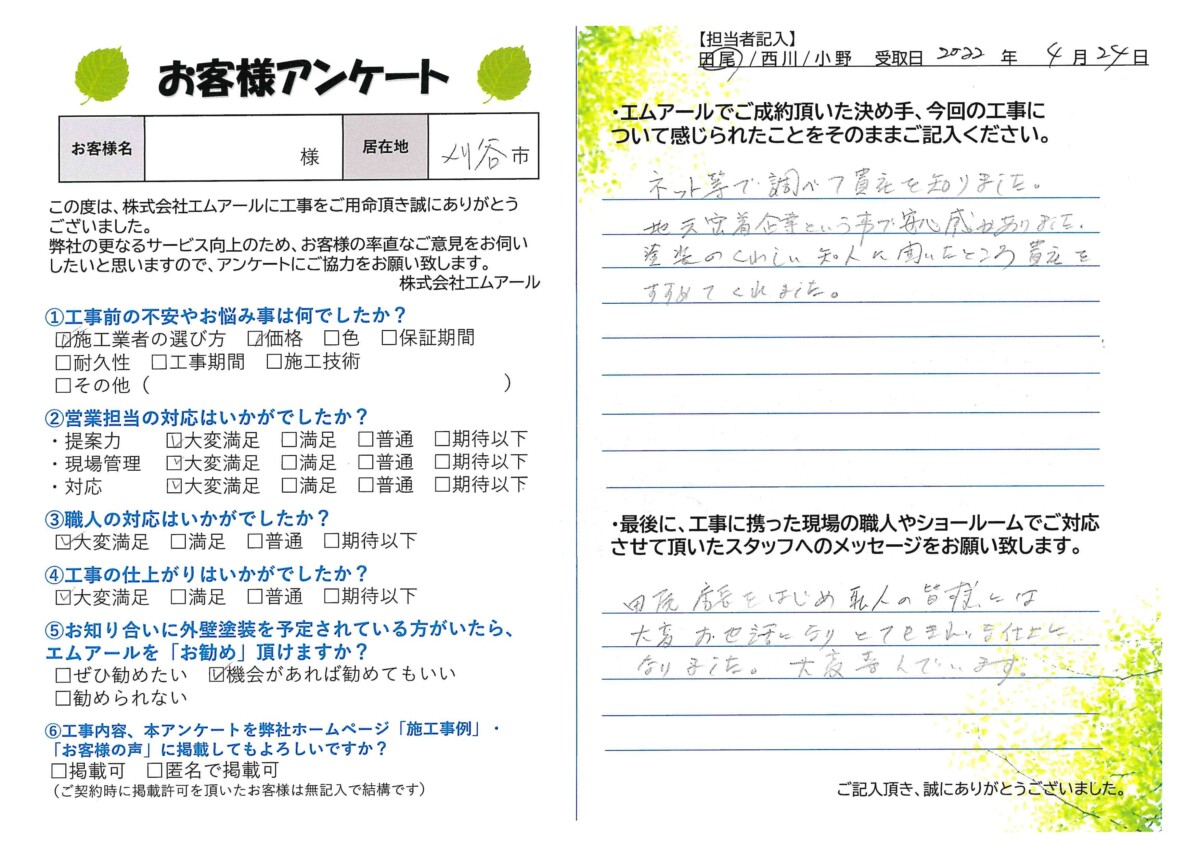 お客様アンケート
お客様名 様 居在地 刈谷市
この度は、株式会社エムアールに工事をご用命頂き誠にありがとう
ございました。
弊社の更なるサービス向上のため、お客様の率直なご意見をお伺い
したいと思いますので、アンケートにご協力をお願い致します。
株式会社エムアール
①工事前の不安やお悩み事は何でしたか？
☑施工業者の選び方 ☑価格 □色 □保証期間
□耐久性 □工事期間 □施工技術
□その他（ ）
②営業担当の対応はいかがでしたか？
・提案力 ☑大変満足 □満足 □普通 □期待以下
・現場管理 ☑大変満足 □満足 □普通 □期待以下
・対応 ☑大変満足 □満足 □普通 □期待以下
③職人の対応はいかがでしたか？
☑大変満足 □満足 □普通 □期待以下
④工事の仕上がりはいかがでしたか？
☑大変満足 □満足 □普通 □期待以下
⑤お知り合いに外壁塗装を予定されている方がいたら、
エムアールを「お勧め」頂けますか？
□ぜひ勧めたい ☑機会があれば勧めてもいい
□勧められない
⑥工事内容、本アンケートを弊社ホームページ「施工事例」・
「お客様の声」に掲載してもよろしいですか？
□掲載可 □匿名で掲載可
（ご契約時に掲載許可を頂いたお客様は無記入で結構です）
【担当者記入】
田尾/西川/小野 受取日 2022 年 4 月 24 日
・エムアールでご成約頂いた決め手、今回の工事に
ついて感じられたことをそのままご記入ください。
ネット等で調べて貴社を知りました。
地元密着企業という事で安心感がありました。
塗装のくわしい知人に聞いたところ貴社を
すすめてくれました。
・最後に、工事に携った現場の職人やショールームでご対応
させて頂いたスタッフへのメッセージをお願い致します。
田尾店長をはじめ職人の皆様には
大変お世話になりとてもきれいな仕上に
なりました。大変喜んでいます。
ご記入頂き、誠にありがとうございました。